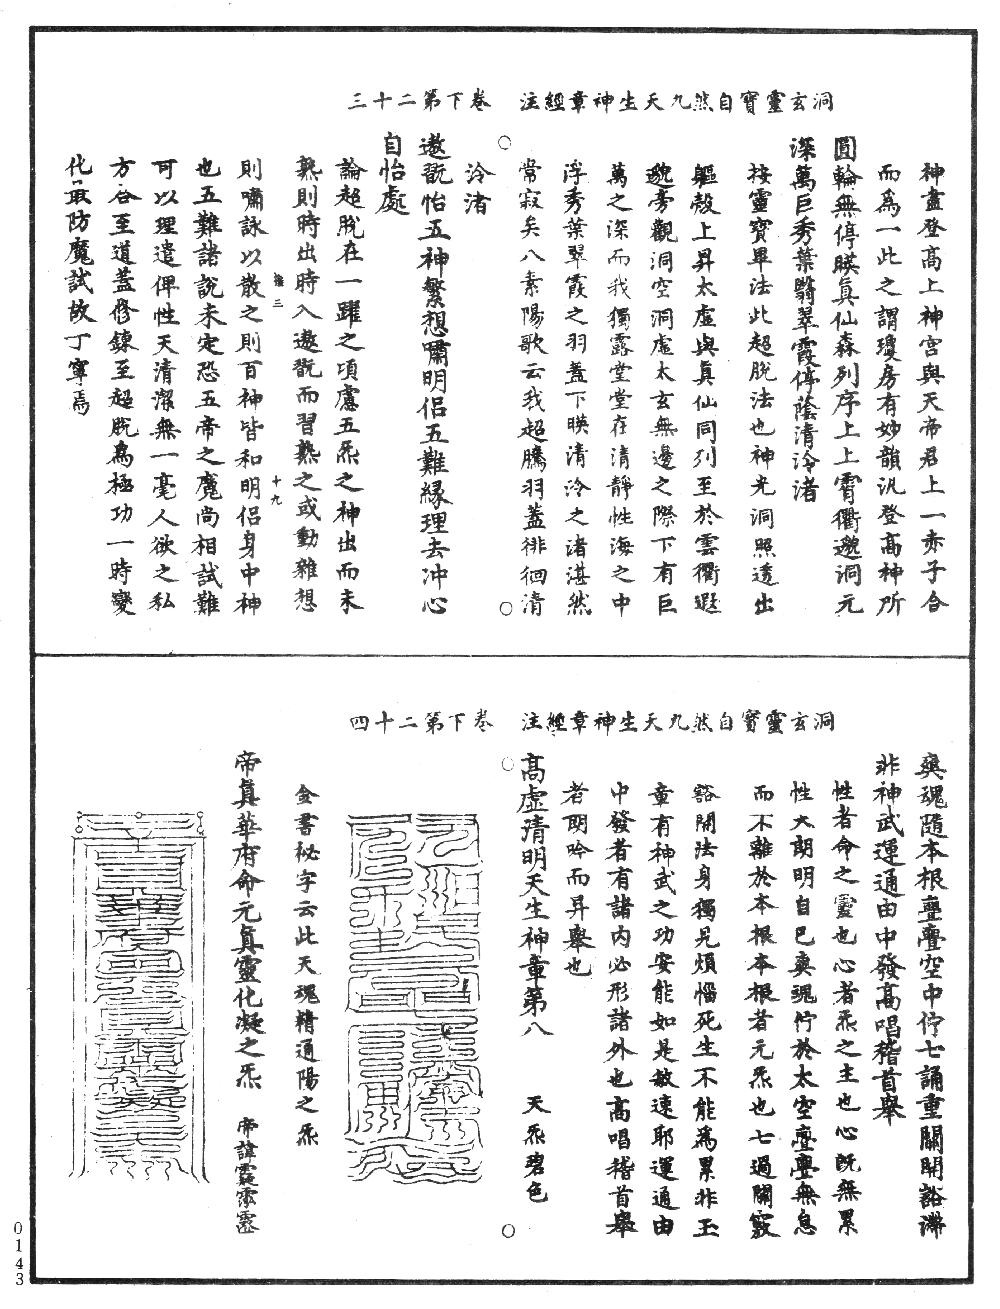 洞玄靈寶自然九天生神章經注　卷下第二十三
神晝登高上神宮與天帝君上一赤子合
而爲一此之謂瓊房有妙韻汎登高神所
圓輪無停暎真仙森列序上上霄衢邈洞元
深萬巨秀葉翳翠霞停蔭清泠渚
按靈寶畢法此超脫法也神光洞照透出
軀殼上昇太虛與真仙同列至於雲衢遐
邈旁觀洞空洞虛太玄無邊之際下有巨
萬之深而我獨露堂堂在清靜性海之中
浮秀葉翠霞之羽蓋下暎清泠之渚湛然
常寂矣八素陽歌云我超騰羽蓋徘徊清
泠渚
遨翫怡五神繁想嘯明侶五難緣理去冲心
自怡處
論超脫在一躍之項慮五炁之神出而未
熟則時出時入遨翫而習熟之或動雜想
三　十九
則嘯詠以散之則百神皆和明侶身中神
也五難諸說未定恐五帝之魔尚相試難
可以理遣俾性天清潔無一毫人欲之私
方谷至道蓋修鍊至超脫爲極功一時變
化最防魔試故丁寧焉
洞玄靈寶自然九天生神章經注　卷下第二十四
爽魂隨本根亹亹空中佇七誦重關開豁滯
非神武運通由中發高唱稽首舉
性者命之靈也心者炁之主也心既無累
性大朗明自已爽魂佇於太空亹亹無息
而不離於本根本根者元炁也七過關竅
豁開法身獨見煩惱死生不能爲累非玉
章有神武之功安能如是敏速耶運通由
中發者有諸内必形諸外也高唱稽首舉
者朗吟而昇舉也
高虛清明天生神章第八　天炁碧色
金書祕字云此天魂精通陽之炁
帝真華府命元真靈化凝之炁　帝諱
0143